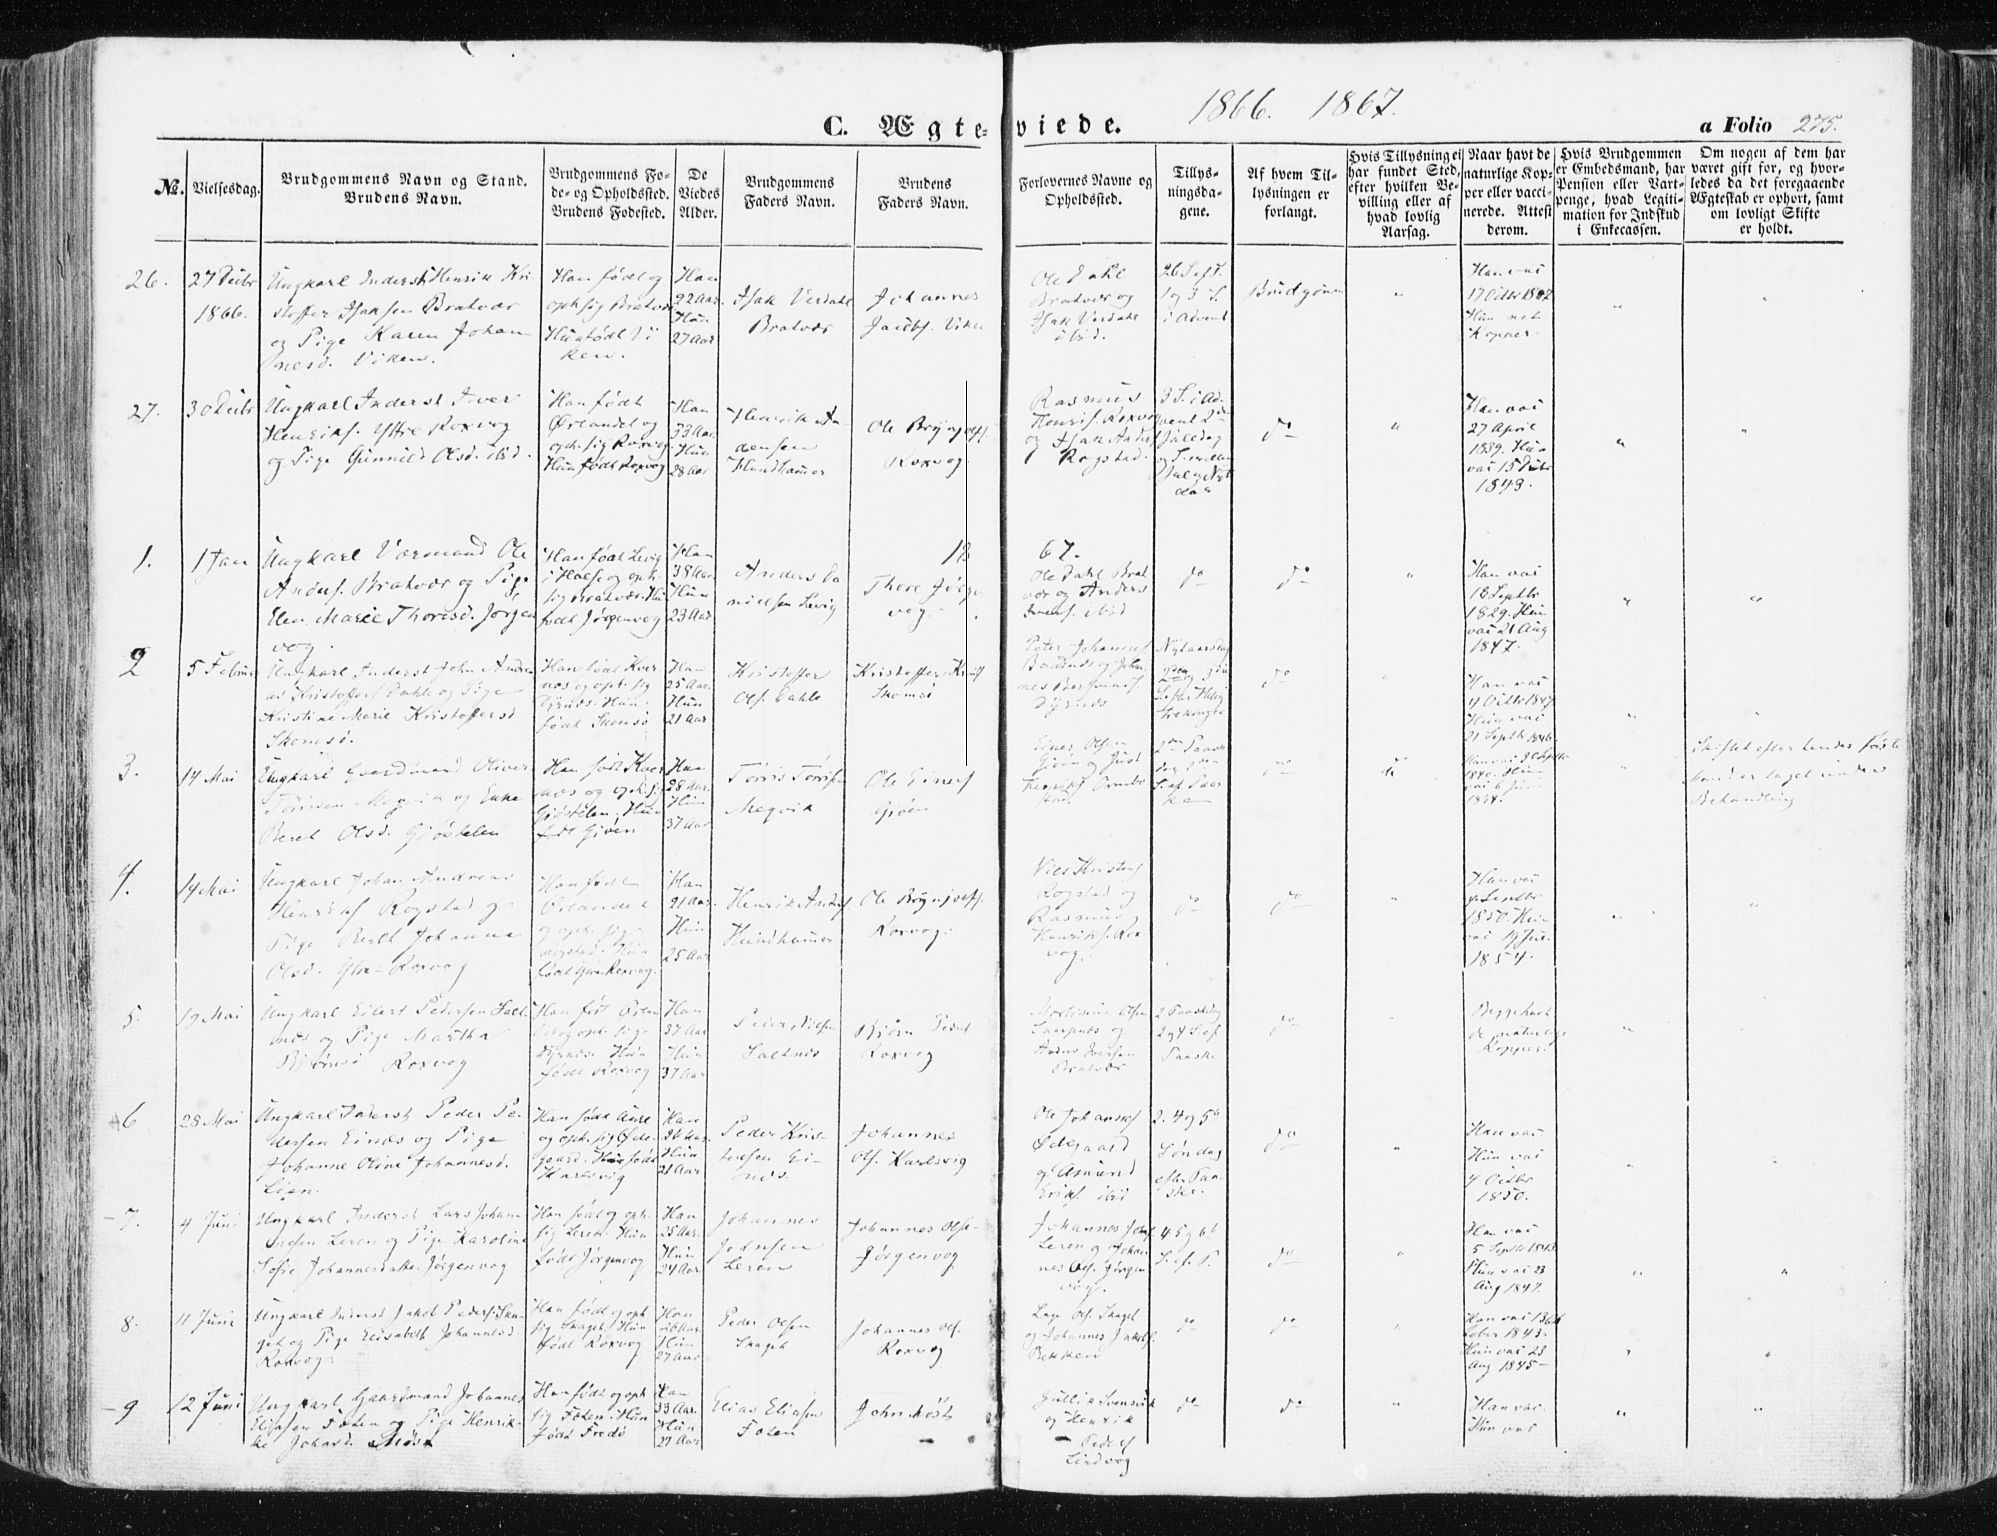 1866. 1867.
C. Ægteviede.
a Folio 275.
No.
Vielsesdag.
Brudgommens Navn og Stand.
Brudens Navn.
Brudgommens Fø-
de- og Opholdssted.
Brudens Fødested.
De
Viedes
Alder.
Brudgommens
Faders Navn.
Brudens
Faders Navn.
Forlovernes Navne og
Opholdssted.
Tillys-
ningsda-
gene.
Af hvem Til-
lysningen er
forlangt.
Hvis Tillysning ei
har fundet Sted,
efter hvilken Be-
villing eller af
hvad lovlig
Aarsag.
Naar havt de
naturlige Kop-
per eller vacci-
nerede. Attest
derom.
Hvis Brudgommen
er Embedsmand, har
Pension eller Vart-
penge, hvad Legiti-
mation for Indskud
i Enkecassen.
Om nogen af dem har
været gift før, og hvor-
ledes da det foregaaende
Ægteskab er ophørt, samt
om lovligt Skifte
er holdt.
26.
27 Decbr
1866.
Ungkarl Inderst Henrik Kri
stoffer Isaksen Bratvær
og Pige Karen Johan
nesd. Viken.
Han født og
oph. sig Bratvær
Hun født Vi
ken.
Han
22 Aar.
Hun
27 Aar
Isak Verdahl
Bratvær
Johannes
Jacobs. Viken
Ole Dahl
Bratvær og
Isak Verdahl
ibid.
26 S. ef. T.
1 og 3 S.
i Advent
Brudgomen
"
Han vac
17 Octbr 1847
Hun nat
Kopper.
"
"
27.
30 Decbr
Ungkarl Inderst Iver
Henriks. Yttre Roxvog
og Pige Gunnild Olsd. ibid.
Han født
Ørlandet og
oph. sig Roxvog
Hun født Roxvog
Han
33 Aar.
Hun
28 Aar
Henrik An-
densen
Hundhamer
Ole Brynjolfs.
Roxvog.
Rasmus
Henriks. Roxvog
og Isak Anders
Rogstad.
3 S. i Ad-
vent 2den
Juledag
og S. mellem
Jul og Nyt
aar
do
"
Han vac
27 April
1839. Hun
vac 15 Decbr
1843.
"
"
1867.
1.
1 Jan
Ungkarl Værmand Ole
Anders. Bratvær og Pige
Elen Marie Thoresd. Jørgen
vog.
Han født Levig
i Halse og oph.
sig Bratvær. Hun
født Jørgenvog
Han
38 Aar.
Hun
23 Aar
Anders Da
nielsen Levig
Thore Jørgen
vog.
Ole Dahl Brat
vær og Anders
Ivers. ibid
do
do
"
Han vac
18 Septbr
1829. Hun
vac 21 Aug
1847.
"
"
2
5 Februar
Ungkarl Inderst John Andre
as Kristoffers Dahle og Pige
Kristine Marie Kristoffersd
Skomsø.
Han født Kver
næs og oph. sig
Dyrnæs. Hun
født Skomsø
Han
25 Aar.
Hun
21 Aar
Kristoffer
Ols. Dahle
Kristoffer Krist
Skomsø
Peter Johannes
og Johan
nes
Dyrnæs
Nytaarsdag
2den og 3die
S. efter Hellig
trekonger
do
"
Han vac
4 Octbr 1847
Hun vac
21 Septbr 1846.
"
"
3.
14 Mai
Ungkarl Gaardmand Oliver
Tørrisen Megvik og Enke
Beret Olsd. Gjøstelen
Han født Kver
næs og oph. sig
Gjøstelen. Hun
født Gjøen
Han
28 Aar.
Hun
37 Aar
Tørris Tørrisen
Megvik
Ole Einers
Gjøen
Einer Olsen
Gjøen og
Henriks
2den Paaske
dag
S. ef. Paas
ke
do
Skiftet efter hendes første
Mand er taget under
Behandling
4.
14 Mai
Ungkarl Johan Andreas
Henriks Rogstad og
Pige Beret Johanna
Olsd. Ytre Roxvog
Han født
Ørlandet
og oph. sig
Rogstad. Hun
født Ytre Roxvog.
Han
21 Aar.
Hun
25 Aar
Henrik Anders
Hundhamer
Ole Brynjolfs.
Roxvog.
Niels Kristens
Rogstad og
Rasmus
Henriks. Rox
vog
do
do
"
Han vac
Septbr
1850. Hun
vac 19 Jul.
1854.
"
"
5.
19 Mai
Ungkarl Eilert Pedersen Salt
næs og Pige Martha
Bjørnsd Roxvog
Han født Ørlan
det og oph. sig
Dyrnæs. Hun
født Roxvog
Han
37 Aar.
Hun
37 Aar
Peder Nielsen
Saltnæs
Bjørn Peders
Roxvog
Olsen
og
Anders Iversen
Bratvær
2 Paaskedag
2 og 4 S. ef.
Paaske
do
"
Begge havt
de naturlige
Kopper.
"
6
28 Mai
Ungkarl Inderst Peder Pe-
dersen Einæs og Pige
Johanne Oline Johannesd.
Lien.
Han født Aure
og oph. sig Øde-
gaard. Hun født
Karlsvig
Han
26 Aar.
Hun
21 Aar
Peder Kris
tensen Ei-
næs.
Johannes
Ols. Karlsvig
Ole Johannes
Ødegaard
og Amund
Eriks. ibid
2. 4 og 5te
Søndag
efter Paa-
ske.
do
"
Han vac.
Hun vac
4 Octbr
1850.
"
"
7.
4 Juni
Ungkarl Inderst Lars Johan
nesen Leren og Pige Karoline
Sofie Johannesdatter Jørgenvog
Han født og oph.
sig Leren. Hun
født Jørgenvog
Han
25 Aar.
Hun
24 Aar
Johannes
Johnsen
Leren
Johannes Olse-
Jørgenvog
Johannes Johns
Leren og Johan
nes Ols. Jørgen
vog.
4 5 og 6te
S. ef. P.
do
"
Han vac
5 Septbr 1843.
Hun vac 23
Aug 1847.
"
"
8.
11 Juni
Ungkarl Inderst Jakob Peders. Ska-
get og Pige Elisabeth Johannesd.
Roxvog
Han født og oph.
sig Skaget. Hun
født Roxvog
Han
26 Aar.
Hun
27 Aar
Peder Olsen
Skaget
Johannes Ols.
Roxvog
Lars Ols. Skaget
og Johannes Jakobs.
Bekken
do
do
"
Han vac 13 Oc
tober 1843.
Hun vac 23
Aug 1845
"
"
9
12 Juni
Ungkarl Gaardmand Johannes
Eliasen Foten og Pige Henrik-
ke Johnsd. Møst
Han født og oph
sig Foten. Hun
født Fredø
Han
33 Aar.
Hun
27 Aar
Elias Eliasen
Foten
John Møst
Gullik Svensvik
og Henrik
Peders
Lindvog
do
do
"
Han vac.
Hun vac
"
"